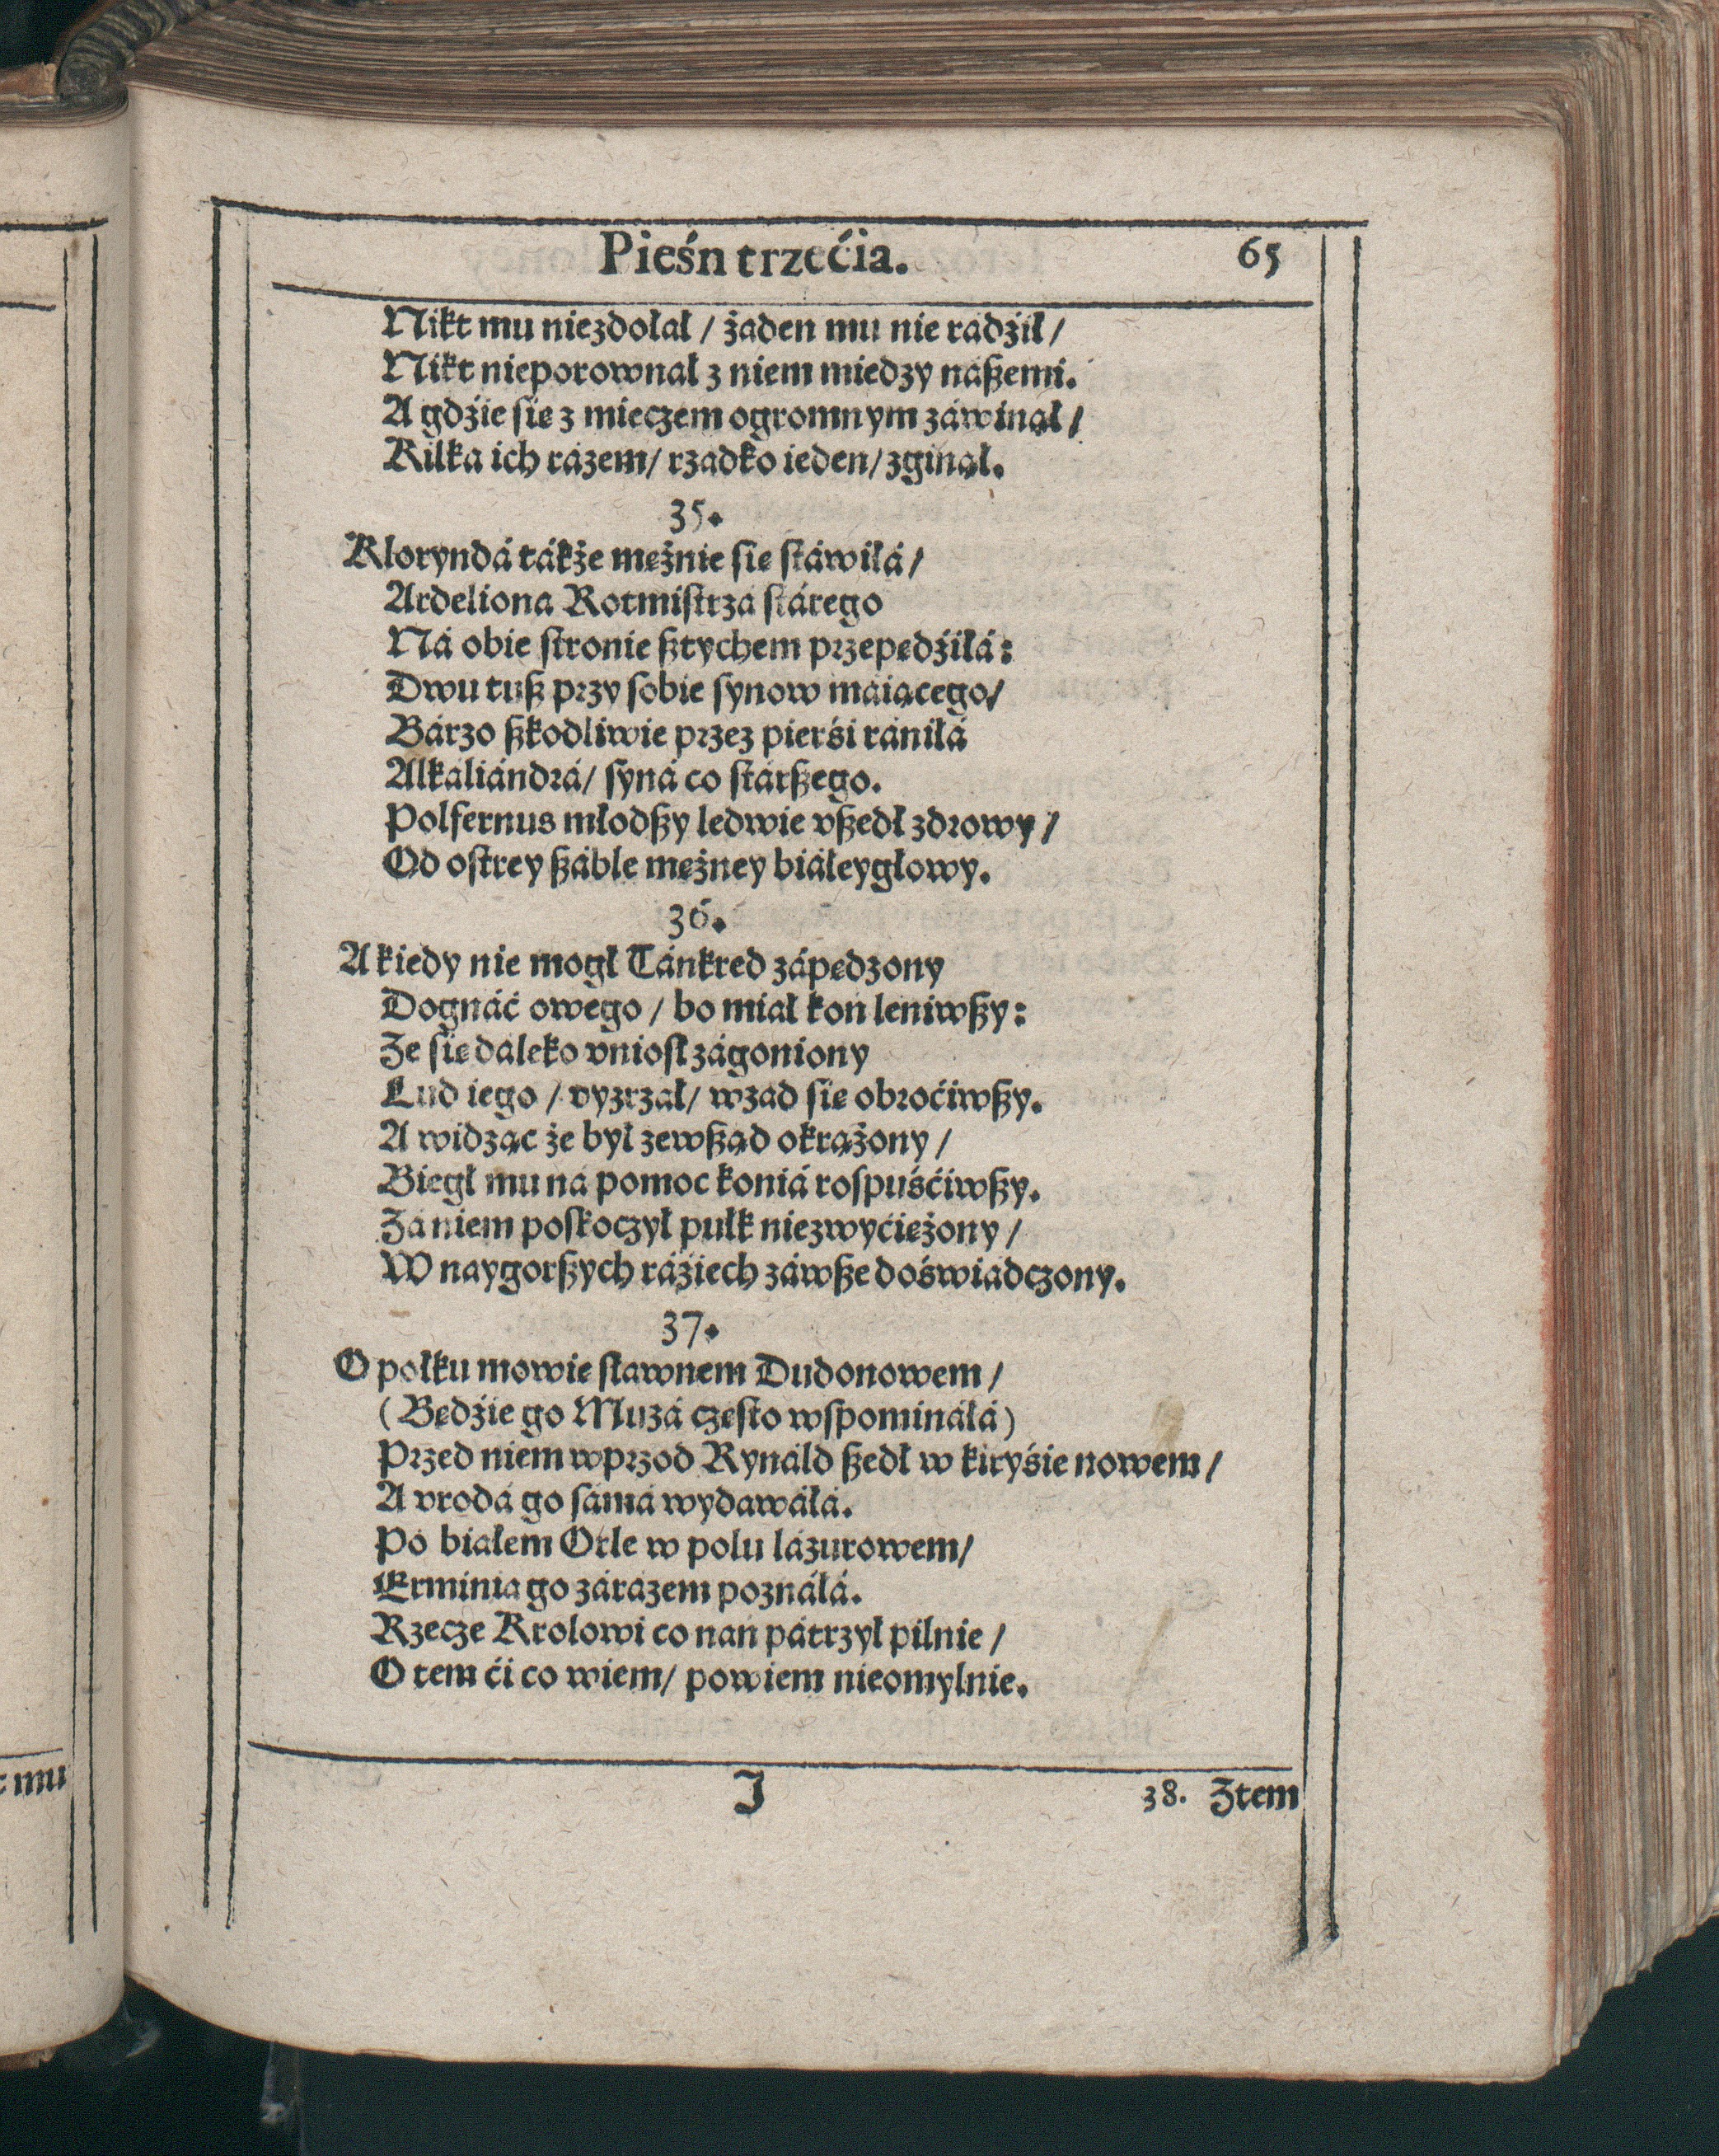 Pieśn trzećia.
65
Nikt mu niezdołał / żaden mu nie radźił /
Nikt nieporownał z niem miedzy nászemi.
A gdźie się z mieczem ogromnym záwinął /
Kilká ich rázem / rzadko ieden / zginął.
35.
Kloryndá tákże mężnie się stáwiłá /
Ardeliona Rotmistrza stárego
Ná obie stronie sztychem przepędźiłá:
Dwu tusz przy sobie synow máiącego /
Bárzo szkodliwie przez pierśi rániłá
Alkáliándrá / syná co stárszego.
Polfernus młodszy ledwie vszedł zdrowy /
Od ostrey száble mężney białeygłowy.
36.
A kiedy nie mogł Tánkred zápędzony
Dognáć owego / bo miał koń leniwszy:
Ze się dáleko vniosł zágoniony
Lud iego / vyzrzał / wzad się obroćiwszy.
A widząc że był zewsząd okrążony /
Biegł mu ná pomoc koniá rospuśćiwszy.
Zá niem poskoczył pułk niezwyćiężony /
W naygorszych ráźiech záwsze doświadczony.
37.
O połku mowię sławnem Dudonowem /
(Będźie go Muzá często wspominałá)
Przed niem wprzod Rynáld szedł w kiryśie nowem /
A vrodá go sámá wydawáłá.
Po białem Orle w polu lázurowem /
Erminia go zárázem poznáłá.
Rzecze Krolowi co nań pátrzył pilnie /
O tem ći co wiem / powiem nieomylnie.
I
38. Ztem
mu